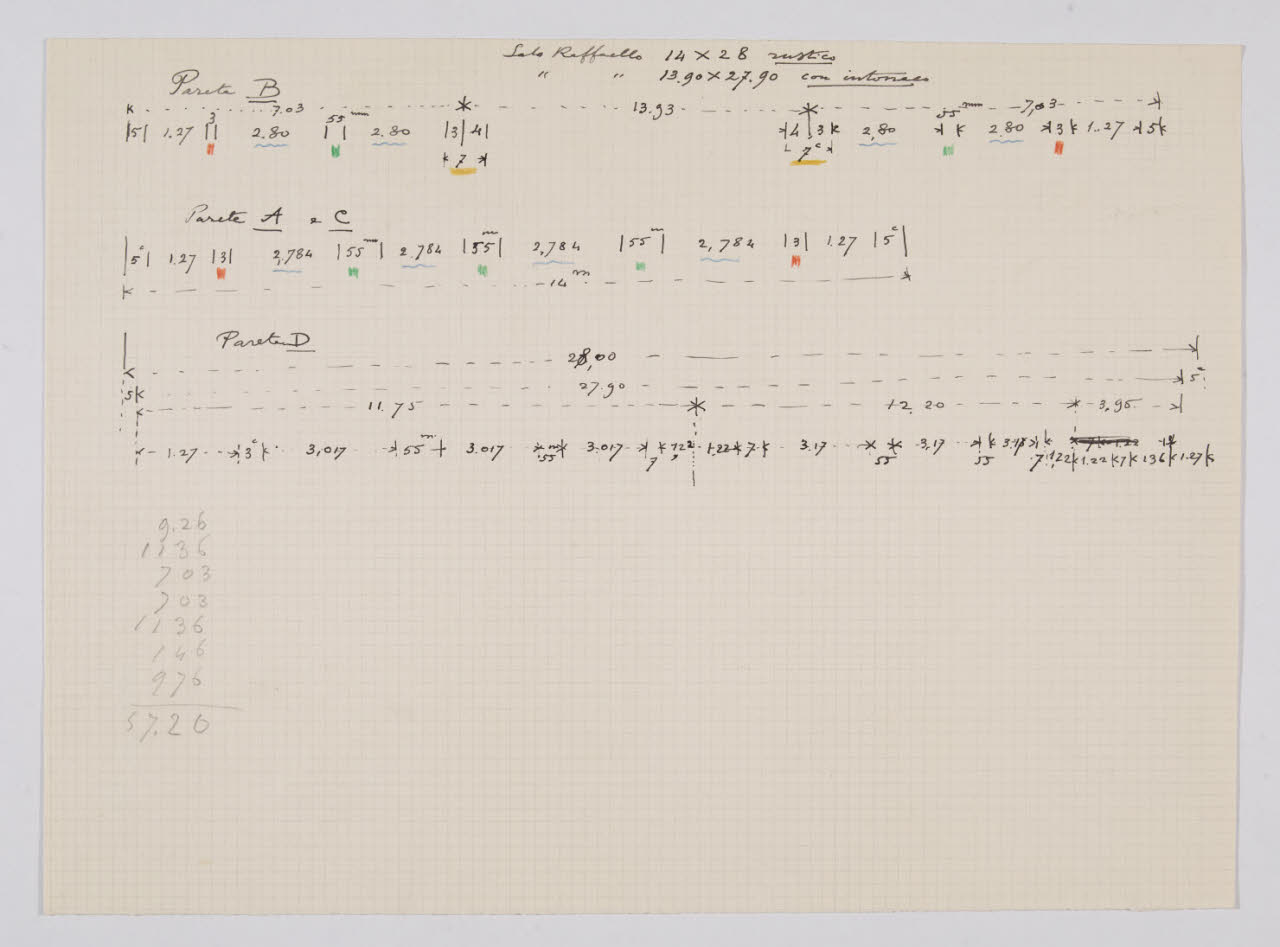 Sala Raffaello 14 X 28 rustico
" " 13.90 X 27.90 con intonaco
Parete B
7.03 13.93 7,03
3 55 mm 55 mm
|5| 1.27 || 2.80 | | 2.80 |3|4| 4|3 2,80 2.80 3 1.27 5
7 7c
Parete A e C
|5c| 1.27 |3| 2,784 |55m| 2.784 |55m| 2,784 |55m| 2,784 |3| 1.27 |5c|
14m
Parete D
28,00
27.90 5c
5
11.75 12.20 3,95
1.27 3c 3,017 55m 3.017 3.017 1.22 7 3.17 3,17 3.17
55 7 55 55 7 1,22 1.22 7 136 1.27
9.26
1136
703
703
1136
146
976
57.20